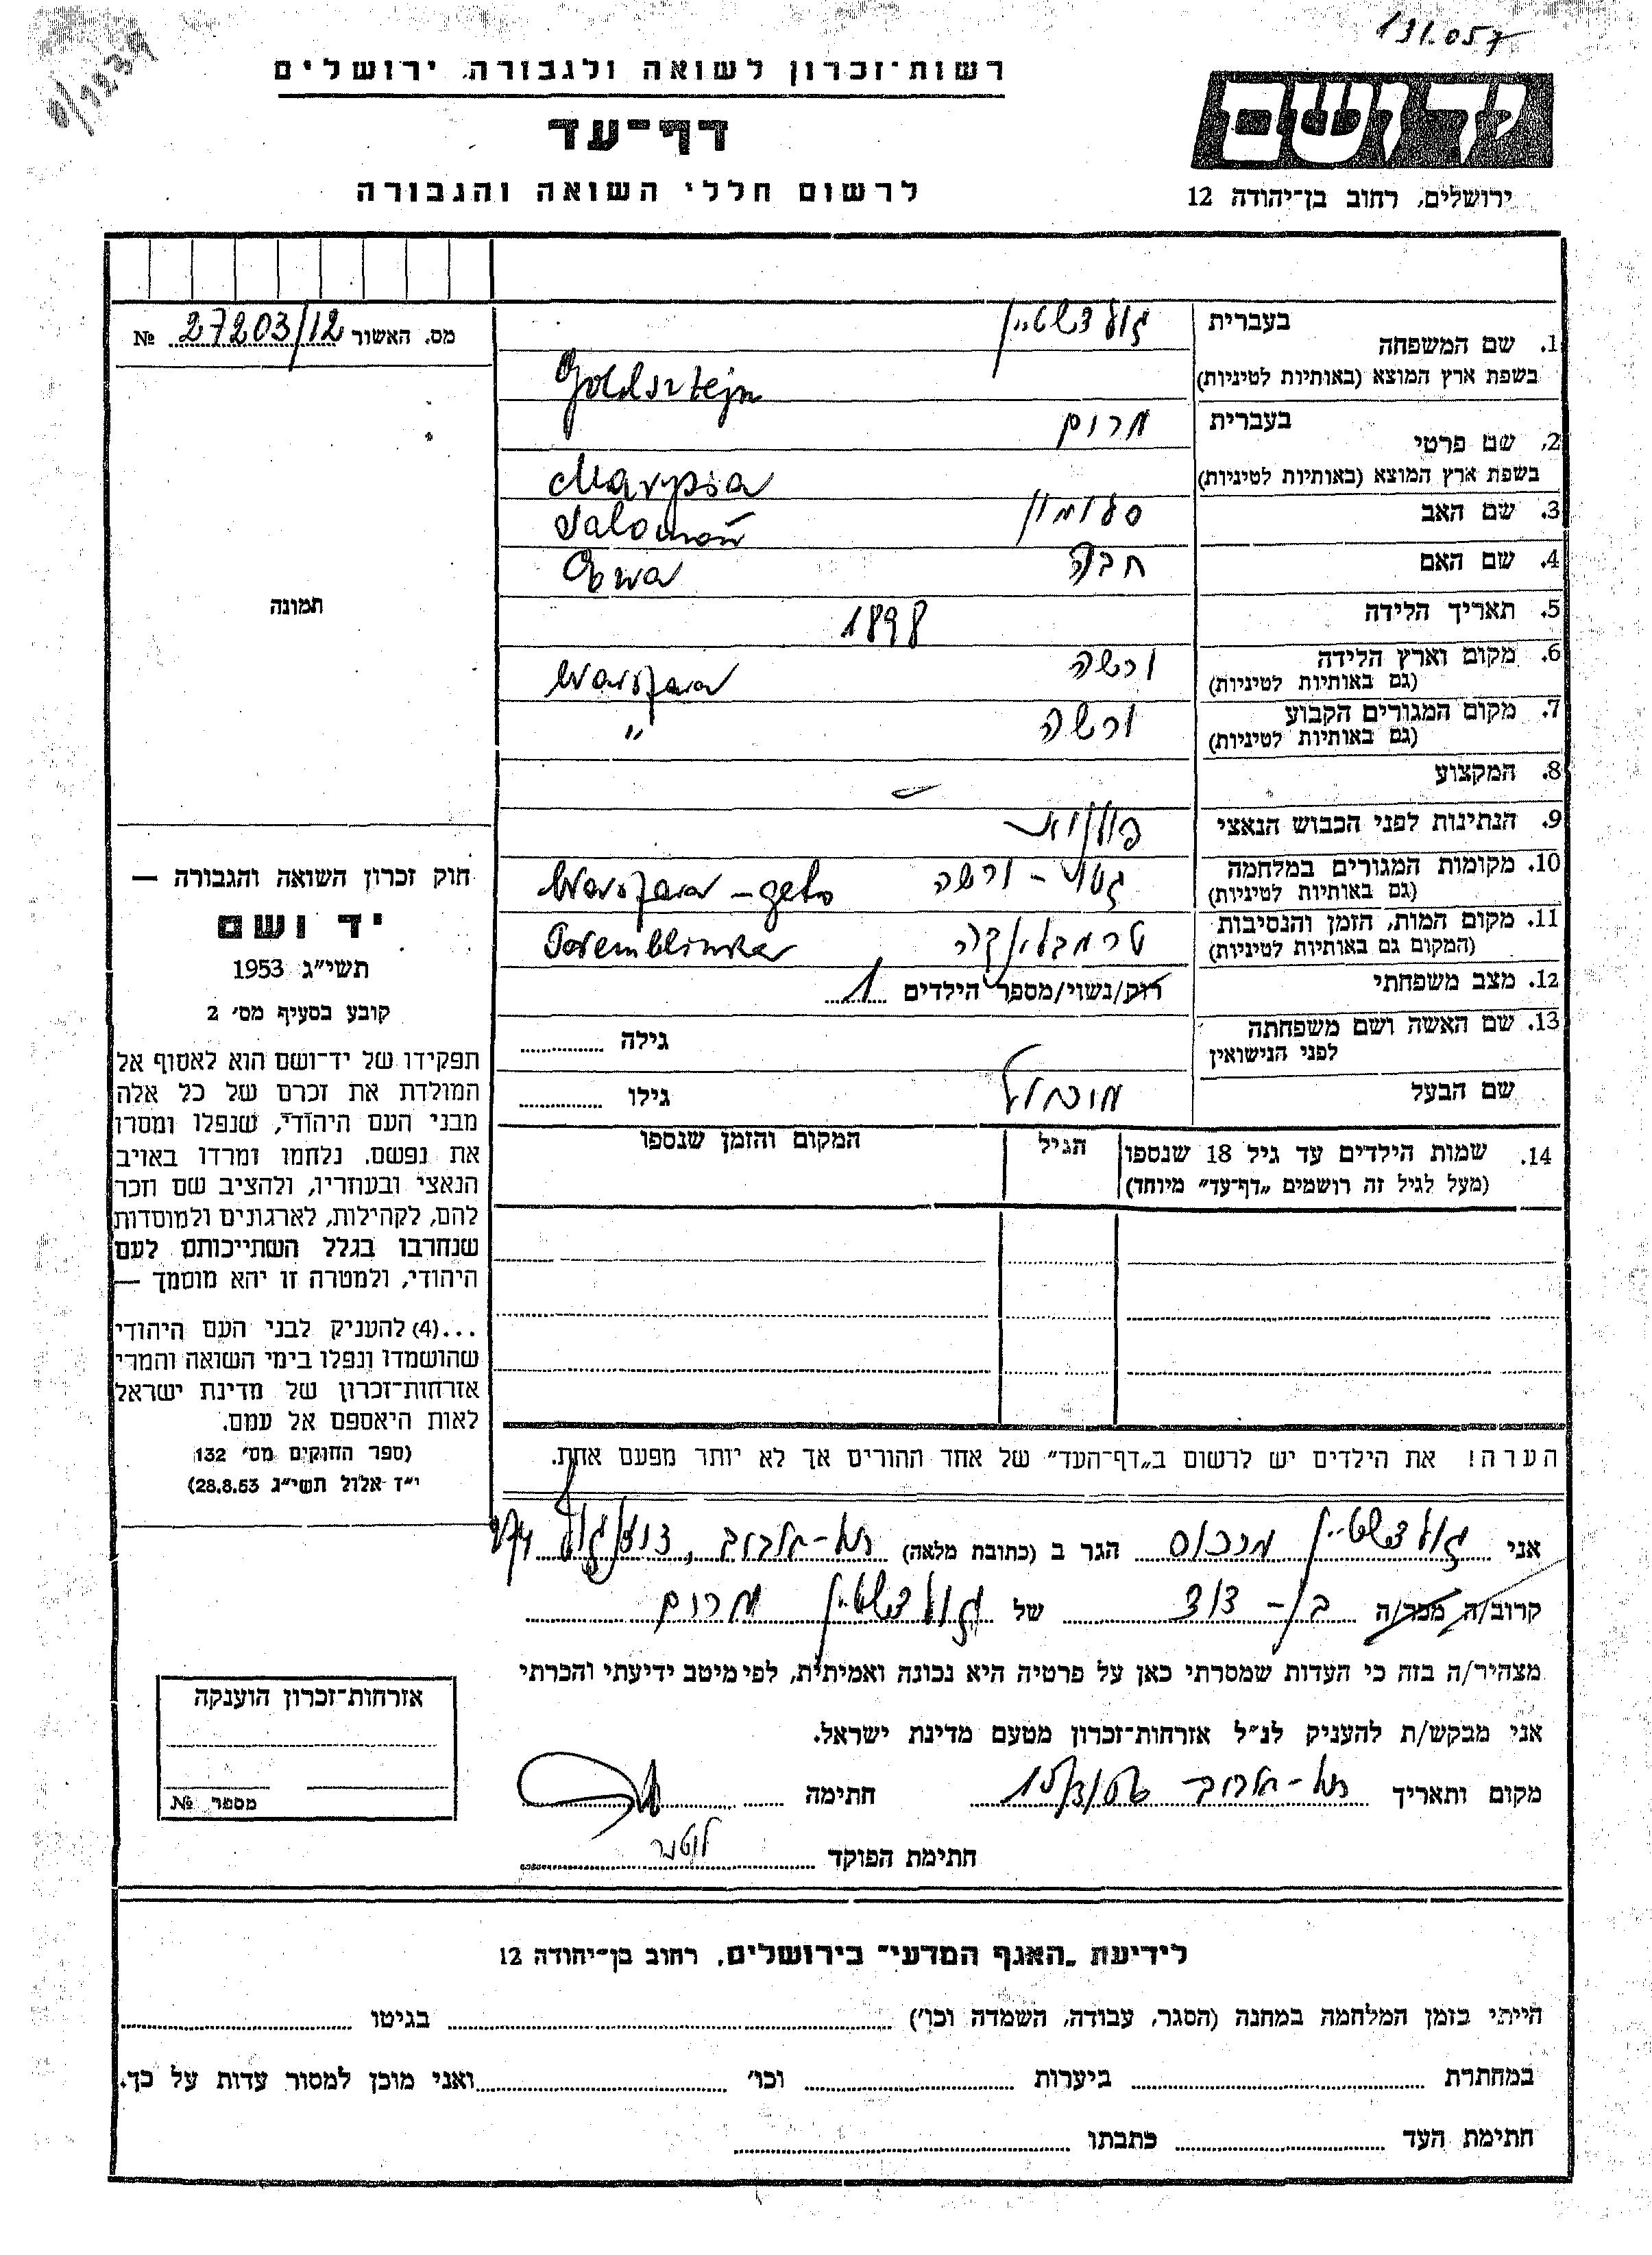 131.057
רשות־זכרון לשואה ולגבורה, ירושלים
דף־עד
לרשום חללי השואה והגבורה
יד ושם
ירושלים, רחוב בן־יהודה 12
מס. האשור 27203/12 №
תמונה
1. שם המשפחה
בעברית גולדשטיין
בשפת ארץ המוצא (באותיות לטיניות) Goldsztejn
2. שם פרטי
בעברית מרים
בשפת ארץ המוצא (באותיות לטיניות) Marysia
3. שם האב סלומון Salomon
4. שם האם חבה Ewa
5. תאריך הלידה 1898
6. מקום וארץ הלידה ורשה Warszawa
(גם באותיות לטיניות)
7. מקום המגורים הקבוע ורשה "
(גם באותיות לטיניות)
8. המקצוע –
9. הנתינות לפני הכבוש הנאצי
10. מקומות המגורים במלחמה גטו – ורשה Warszawa – geto
(גם באותיות לטיניות)
11. מקום המות, הזמן והנסיבות טרמבלינקה Tremblinka
(המקום גם באותיות לטיניות)
12. מצב משפחתי רוק/נשוי/מספר הילדים 1
13. שם האשה ושם משפחתה גילה
לפני הנישואין
שם הבעל מיכאל גילו
14. שמות הילדים עד גיל 18 שנספו הגיל המקום והזמן שנספו
(מעל לגיל זה רושמים „דף־עד” מיוחד)
הערה! את הילדים יש לרשום ב„דף־העד” של אחד ההורים אך לא יותר מפעם אחת.
חוק זכרון השואה והגבורה —
יד ושם
תשי״ג 1953
קובע בסעיף מס׳ 2
תפקידו של יד־ושם הוא לאסוף אל
המולדת את זכרם של כל אלה
מבני העם היהודי, שנפלו ומסרו
את נפשם, נלחמו ומרדו באויב
הנאצי ובעוזריו, ולהציב שם וזכר
להם, לקהילות, לארגונים ולמוסדות
שנחרבו בגלל השתייכותם לעם
היהודי, ולמטרה זו יהא מוסמך —
...(4) להעניק לבני העם היהודי
שהושמדו ונפלו בימי השואה והמרי
אזרחות־זכרון של מדינת ישראל
לאות היאספם אל עמם.
(ספר החוקים מס׳ 132
י״ז אלול תשי״ג 28.8.53)
אני גולדשטיין מרכוס הגר ב (כתובת מלאה) תל-אביב,
קרוב/ה מכר/ה בן-דוד של גולדשטיין מרים
מצהיר/ה בזה כי העדות שמסרתי כאן על פרטיה היא נכונה ואמיתית, לפי מיטב ידיעתי והכרתי
אני מבקש/ת להעניק לנ״ל אזרחות־זכרון מטעם מדינת ישראל.
מקום ותאריך תל-אביב חתימה
חתימת הפוקד
אזרחות־זכרון הוענקה
מספר №
לידיעת „האגף המדעי” בירושלים, רחוב בן־יהודה 12
הייתי בזמן המלחמה במחנה (הסגר, עבודה, השמדה וכו׳) בגיטו
במחתרת ביערות וכו׳ ואני מוכן למסור עדות על כך.
חתימת העד כתבתו